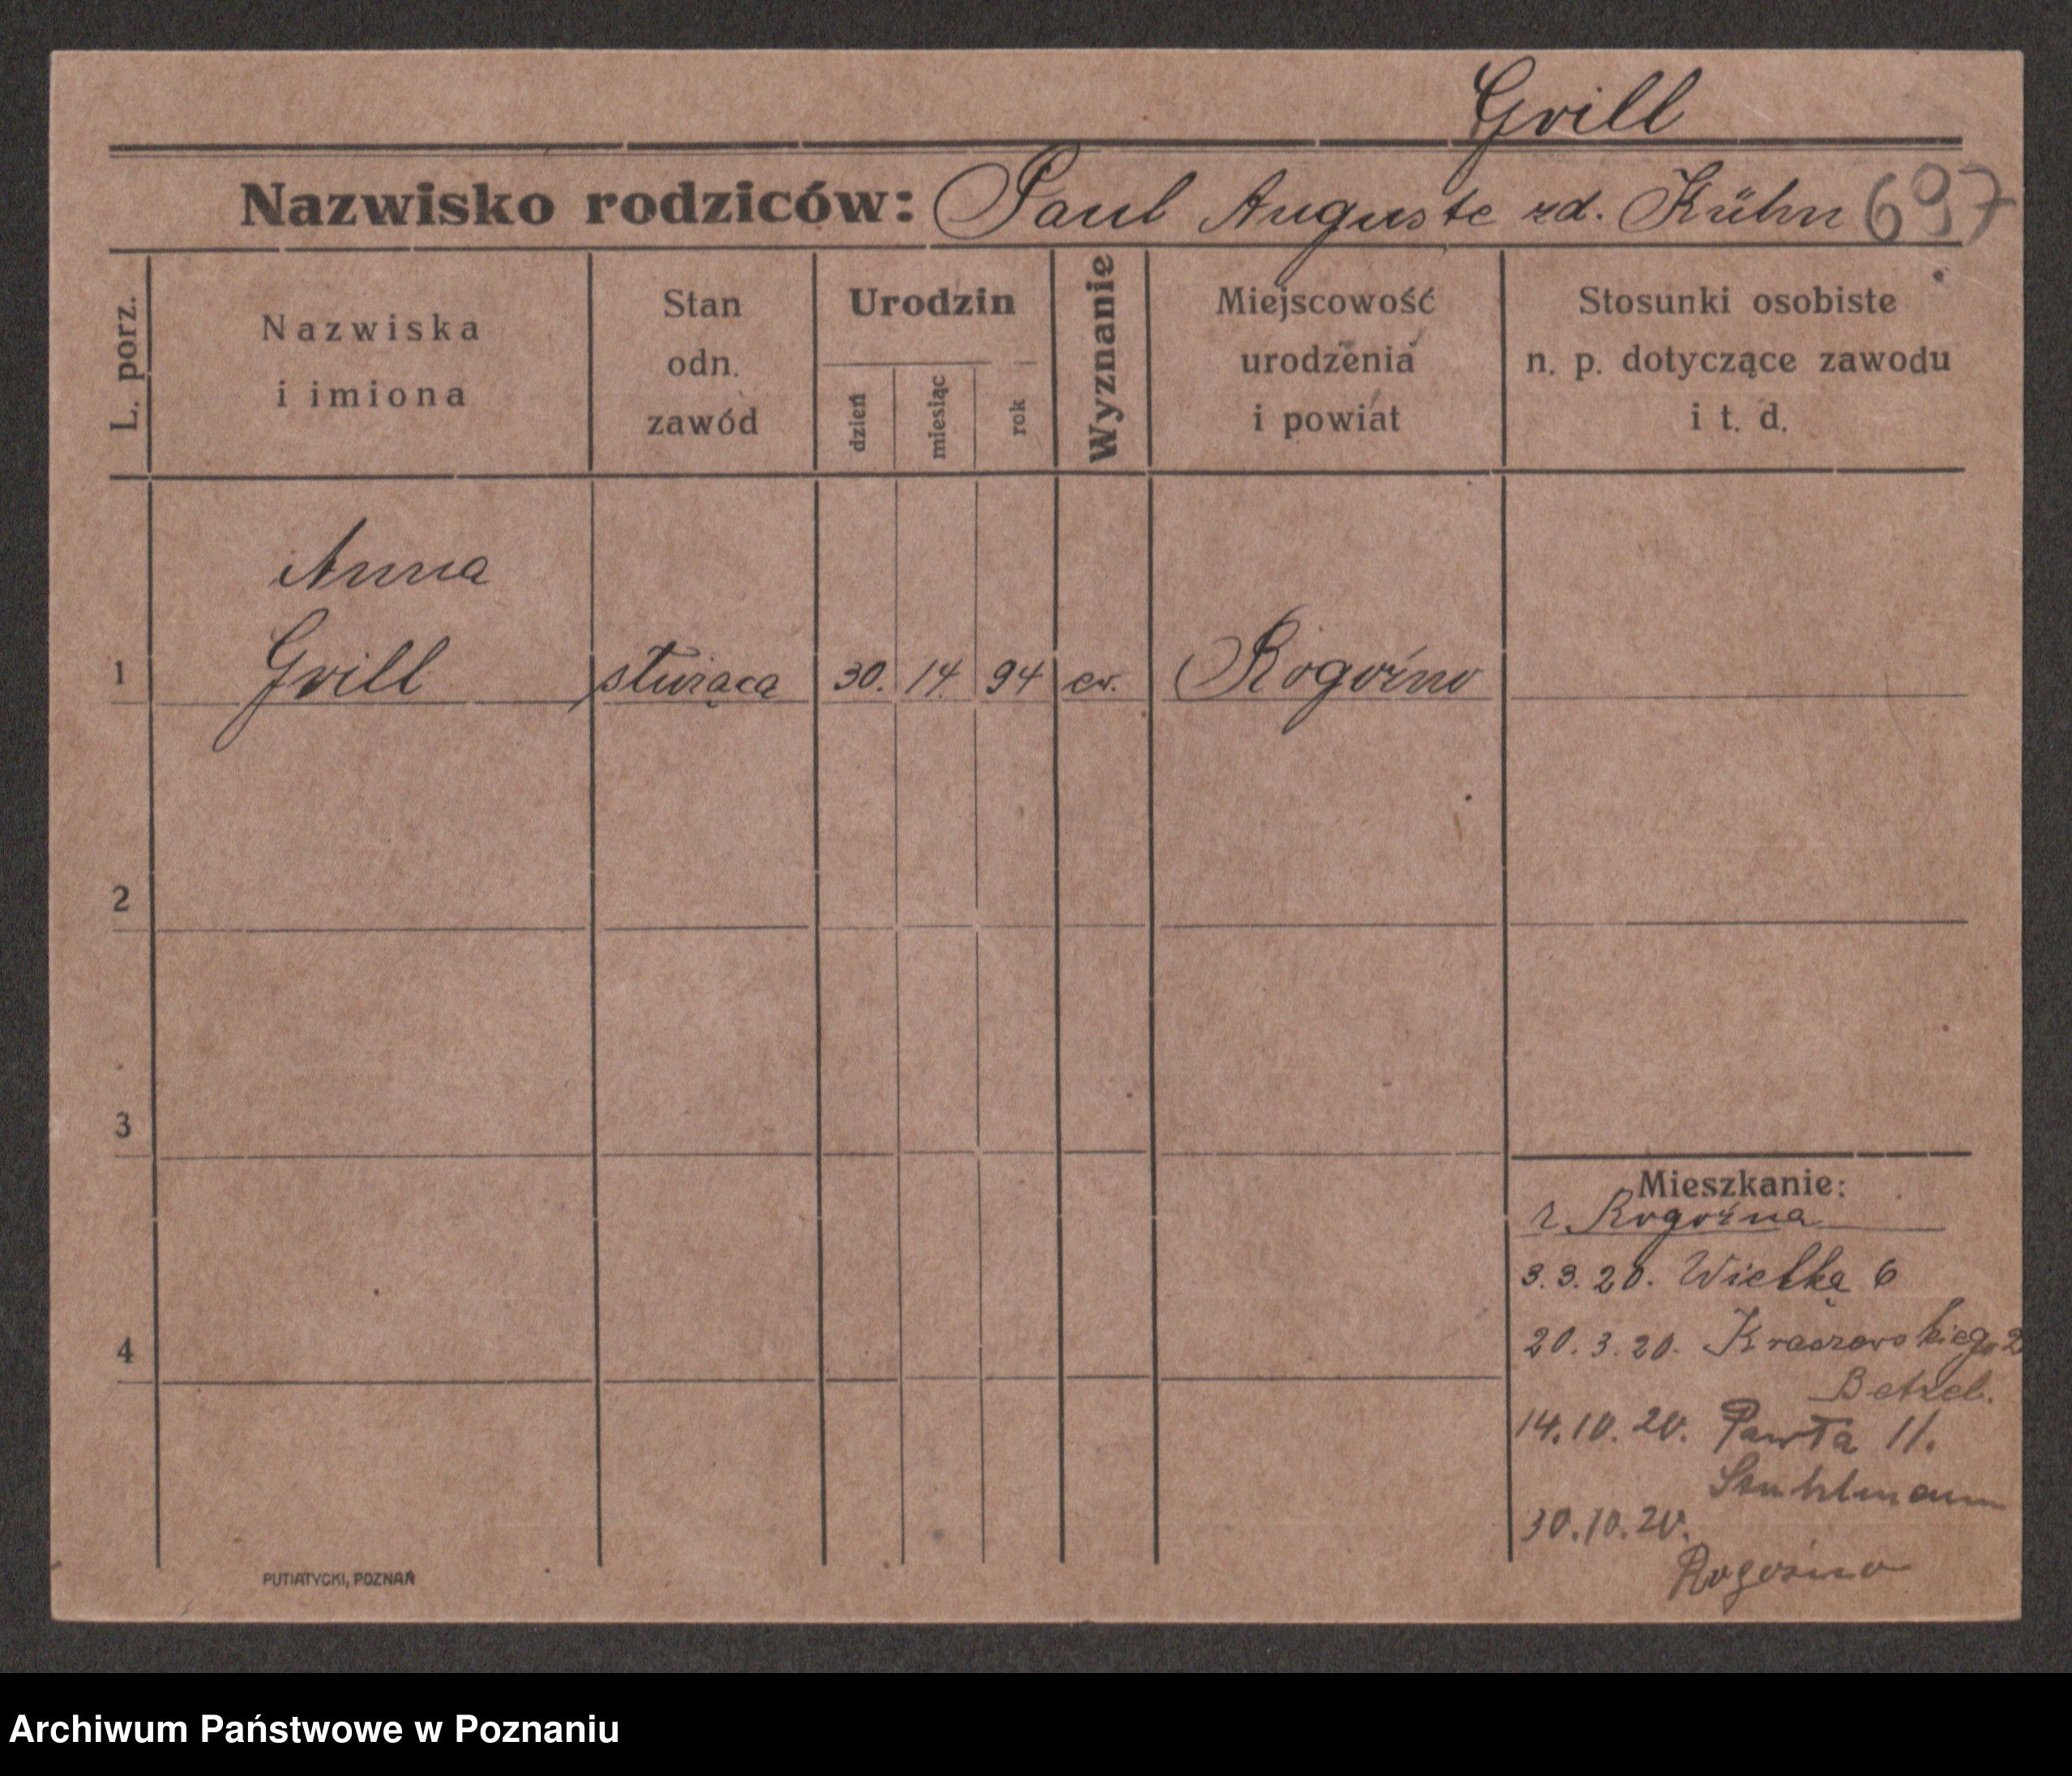 Grill
Nazwisko rodziców: Paul Auguste zd. Kühn 697
L. porz.
Nazwiska
i imiona
Stan
odn.
zawód
Urodzin
dzień
miesiąc
rok
Wyznanie
Miejscowość
urodzenia
i powiat
Stosunki osobiste
n. p. dotyczące zawodu
i t. d.
Anna
1 Grill służąca 30. 94 ew. Rogoźno
2
3
4
Mieszkanie:
z Rogoźna
3.3.20. Wielka 6
20.3.20. Kraszewskiego
14.10.20. Pawła 11.
Stuhlmann
30.10.20.
Rogoźno
PUTIATYCKI, POZNAŃ
Archiwum Państwowe w Poznaniu